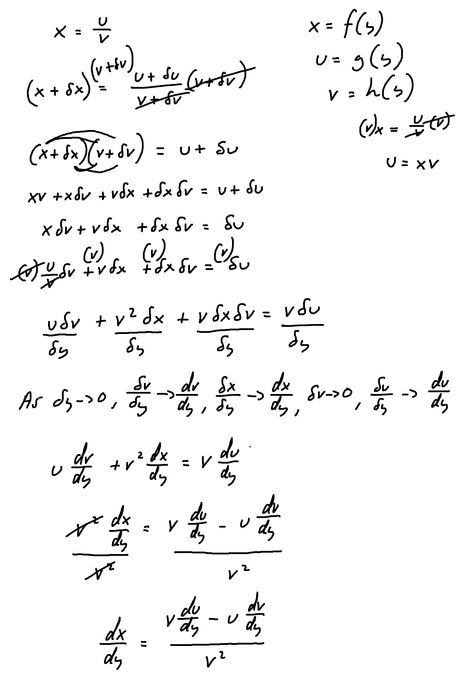 x = u/v
x = f(y)
u = g(y)
v = h(y)
(v)x = u/v (v)
u = xv
(x + δx)(v+δv) = (u + δu)/(v + δv) (v+δv)
(x+δx)(v+δv) = u + δu
xv + xδv + vδx + δxδv = u + δu
xδv + vδx + δxδv = δu
(v) u/v δv + (v)vδx + (v)δxδv = (v)δu
uδv/δy + v²δx/δy + vδxδv/δy = vδu/δy
As δy→0, δv/δy → dv/dy, δx/δy → dx/dy, δv→0, δu/δy → du/dy
u dv/dy + v² dx/dy = v du/dy
(v² dx/dy)/v² = (v du/dy - u dv/dy)/v²
dx/dy = (v du/dy - u dv/dy)/v²